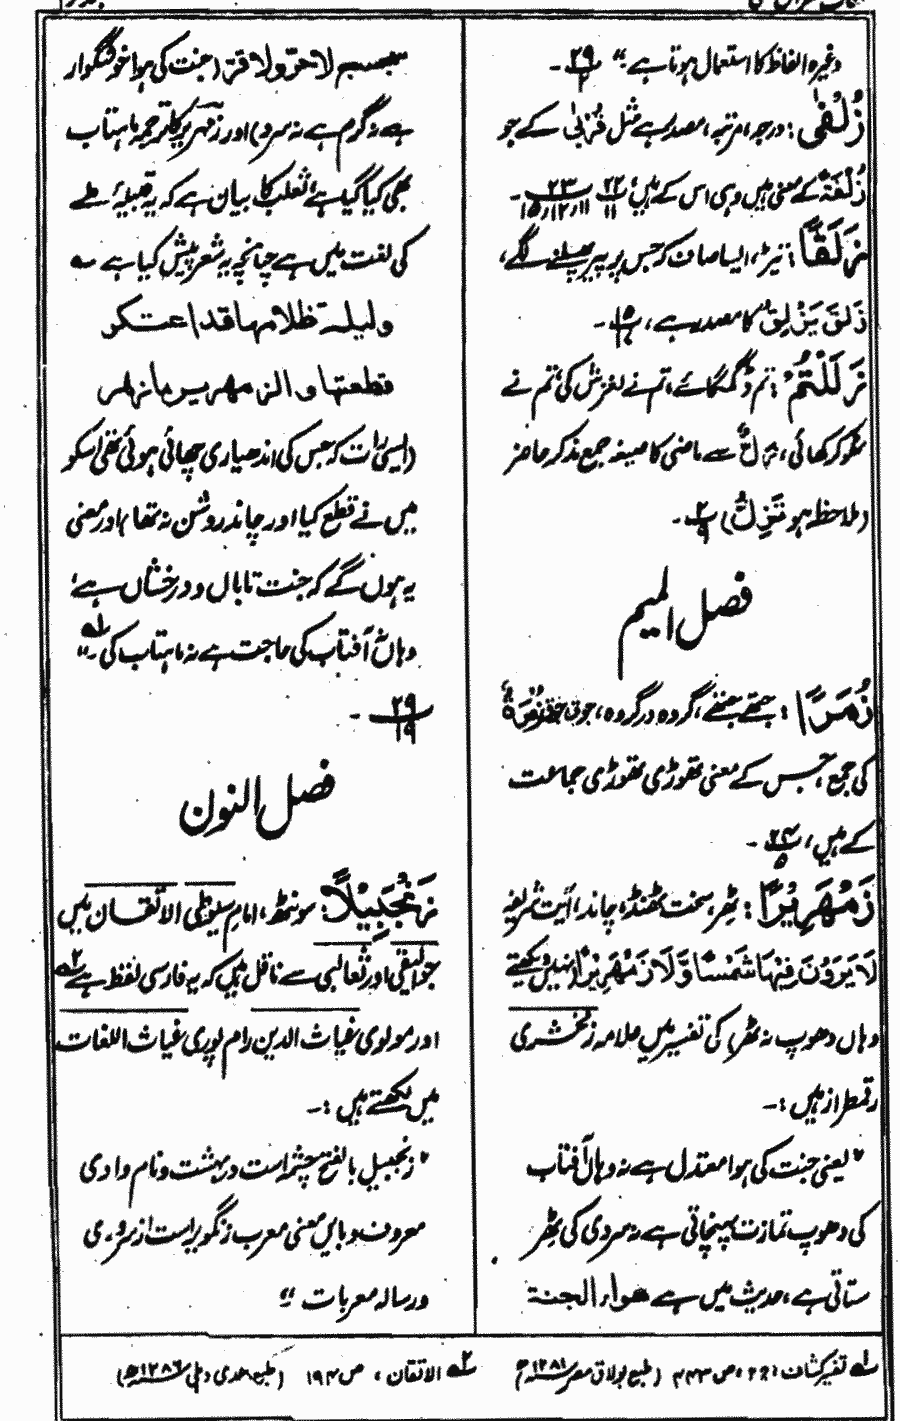 وغیرہ الفاظ کا استعمال ہوتا ہے "۲۹/۲ -
زُلْفٰی : درجہ، مرتبہ، مصدر ہے مثل قُرْبٰی کے جو
زُلْفَۃٌ کے معنی ہیں وہی اس کے ہیں؛ ۲۲/۱۱ ۲۳/۱۵،۱۲،۱۱ -
زَلَقًا : تیز، ایسا صاف کہ جس پر پیر پھسلنے لگے،
زَلَقَ یَزْلِقُ کا مصدر ہے، ۱۵/ -
زَلَلْتُمْ : تم ڈگمگائے، تم نے لغزش کی، تم نے
ٹھوکر کھائی، زَلٌّ سے ماضی کا صیغہ جمع مذکر حاضر
(ملاحظہ ہو تَزِلُّ) ۲/۹ -
فصل المیم
زُمَرًا : جتھے جتھے، گروہ در گروہ، جوق جوق زُمْرَۃٌ
کی جمع، جس کے معنی تھوڑی تھوڑی جماعت
کے ہیں، ۲۴/۵ -
زَمْهَرِیْرًا : ٹھر، سخت ٹھنڈ، چاند، آیت شریفہ
لَا یَرَوْنَ فِیْهَا شَمْسًا وَّلَا زَمْهَرِیْرًا (نہیں دیکھتے
وہاں دھوپ نہ ٹھر) کی تفسیر میں علامہ زمخشری
رقمطراز ہیں :-
" یعنی جنت کی ہوا معتدل ہے نہ وہاں آفتاب
کی دھوپ تمازت پہنچاتی ہے نہ سردی کی ٹھر
ستاتی ہے، حدیث میں ہے هواء الجنة
سجسج لا حر ولا قر (جنت کی ہوا خوشگوار
ہے نہ گرم ہے نہ سرد) اور زمہریر کا ترجمہ ماہتاب
بھی کیا گیا ہے، ثعلب کا بیان ہے کہ یہ قبیلۂ طے
کی لغت میں ہے چنانچہ یہ شعر پیش کیا ہے ؎
وليلة ظلامها قد اعتكر
قطعتها والزمهرير ما زهر
(ایسی رات کہ جس کی اندھیاری چھائی ہوئی تھی اسکو
میں نے قطع کیا اور چاند روشن نہ تھا) اور معنی
یہ ہوں گے کہ جنت تاباں و درخشاں ہے،
وہاں آفتاب کی حاجت ہے نہ ماہتاب کی -" لہ
۲۹/۱۹ -
فصل النون
زَنْجَبِیْلًا : سونٹھ، امام سیوطی الاتقان میں
جوالیقی اور ثعالبی سے ناقل ہیں کہ یہ فارسی لفظ ہے ۲ہ
اور مولوی غیاث الدین رام پوری غیاث اللغات
میں لکھتے ہیں :-
" زنجبیل بالفتح چشمہ است در بہشت و نام وادی
معروف و بایں معنی معرب است از
ورسالہ معربات "
لہ تفسیر کشاف: ۲۶۶، ص ۴۴۳ (طبع بولاق مصر ۱۲۸۱ھ)
۲ہ الاتقان، ص ۱۹۴ (طبع احمدی دہلی ۱۲۸۶ھ)